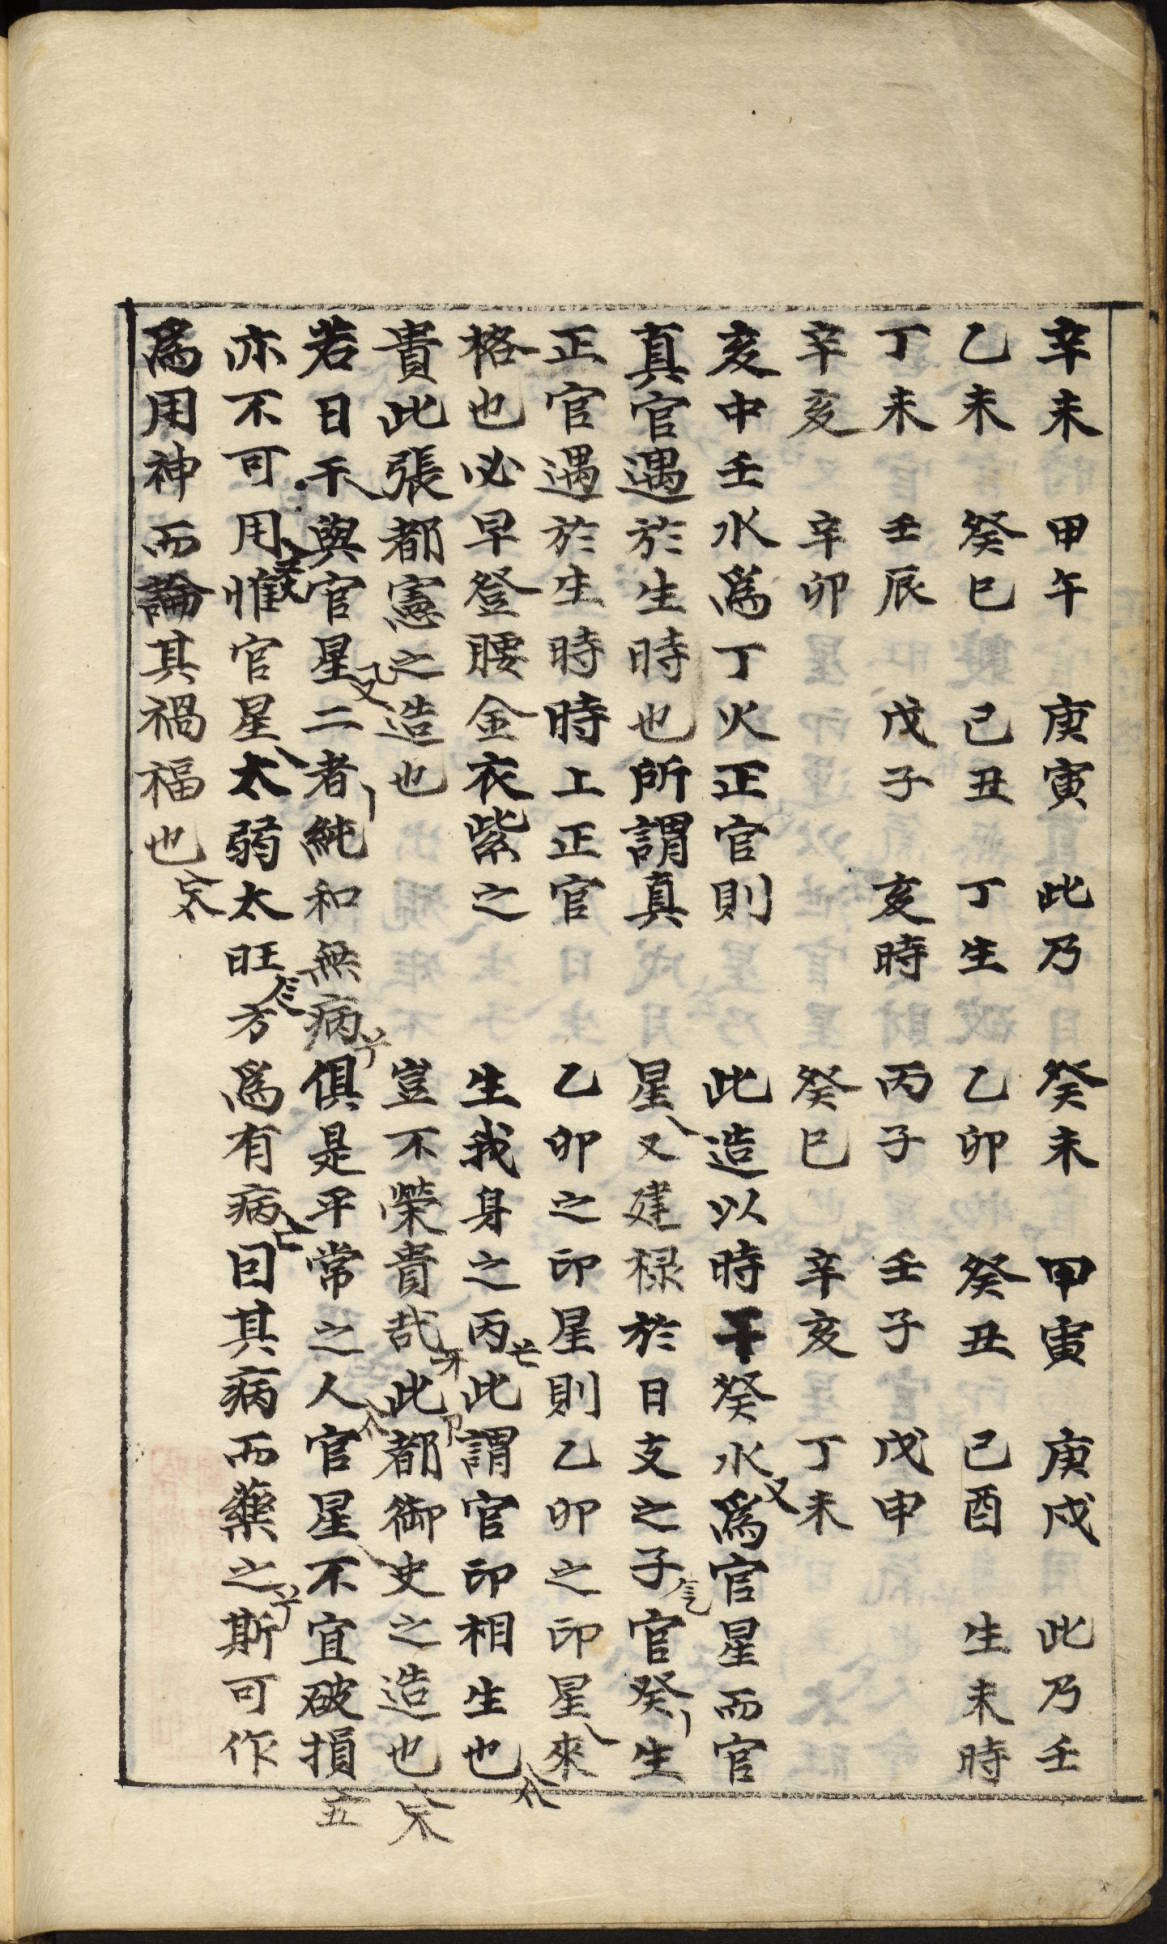 辛未　甲午　庚寅　此乃
乙未　癸巳　己丑　丁生
丁未　壬辰　戊子　亥時
辛亥　辛卯
亥中壬水爲丁火正官則
真官遇於生時也所謂真
正官遇於生時時上正官
格也必早登腰金衣紫之
貴此張都憲之造也
癸未　甲寅　庚戌　此乃壬
乙卯　癸丑　己酉　生未時
丙子　壬子　戊申
癸巳　辛亥　丁未
此造以時干癸水爲官星而官
星又建禄於日支之子官癸生
乙卯之印星則乙卯之印星來
生我身之丙此謂官印相生也
豈不榮貴哉此都御史之造也
若日干與官星二者純和無病俱是平常之人官星不宜破損
亦不可用惟官星太弱太旺方爲有病因其病而藥之斯可作
爲用神而論其禍福也